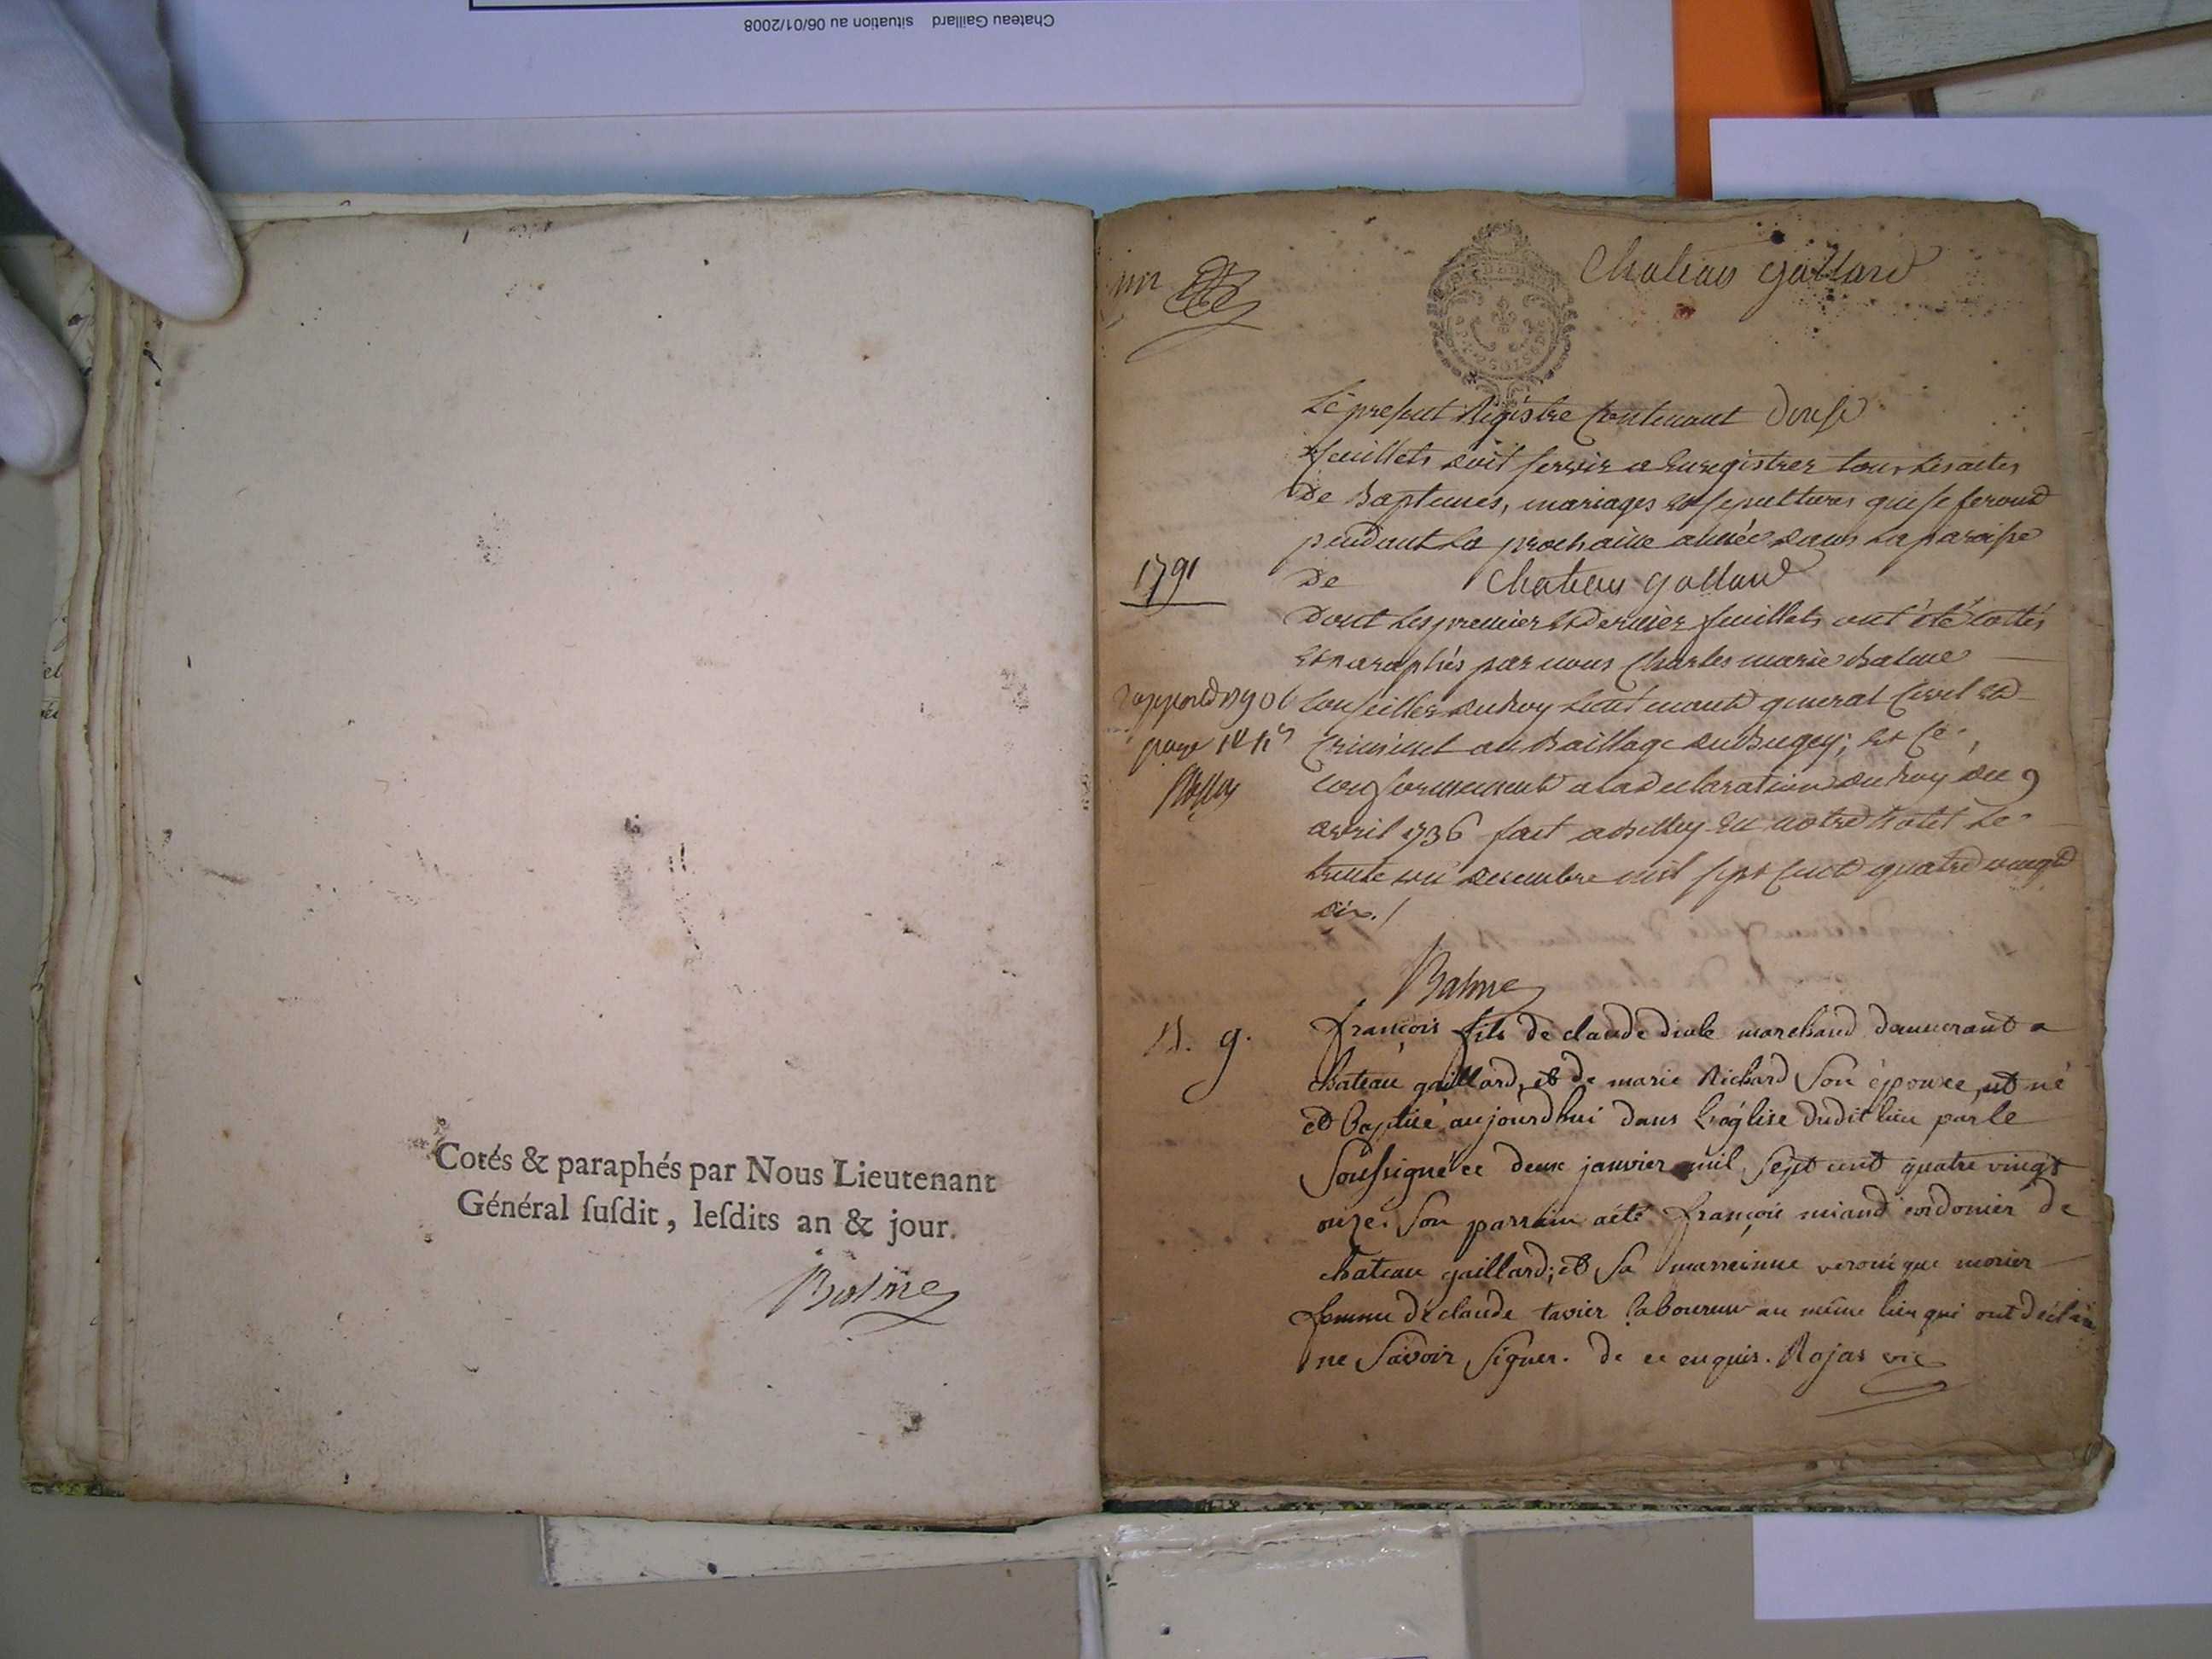 Chateau Gaillard situation au 06/01/2008
Cotés & paraphés par Nous Lieutenant
Général ſuſdit, leſdits an & jour.
Balme
Chateau gallard
Le present Registre Contenant douse
feuillets doit servir a Enregistrer tous les actes
de Baptemes, mariages et sepultures qui se feront
pendant la prochaine année dans la paroisse
1791
de Chateau gallard
dont les premier et dernier feuillets ont été cottés
et paraphés par nous Charles marie balme
Conseiller du Roy Lieutenant general Civil et
Criminel au Bailliage du Bugey; et ce
conformement a la declaration du Roy du 9
avril 1736 fait a Belley en notre hotel le
trente un decembre mil sept cent quatre vingt
dix./
Balme
françois fils de claude diale marchand demeurant a
chateau gaillard, et de marie Richard son épouse, est né
et baptisé aujourdhui dans L'église dudit lieu par le
soussigné ce deux janvier mil sept cent quatre vingt
onze. son parrain a été françois miand cordonier de
chateau gaillard; et sa marreinne veronique morier
femme de claude tavier laboureur au même lieu qui ont déclaré
ne savoir signer. de ce enquis. Rojas vic